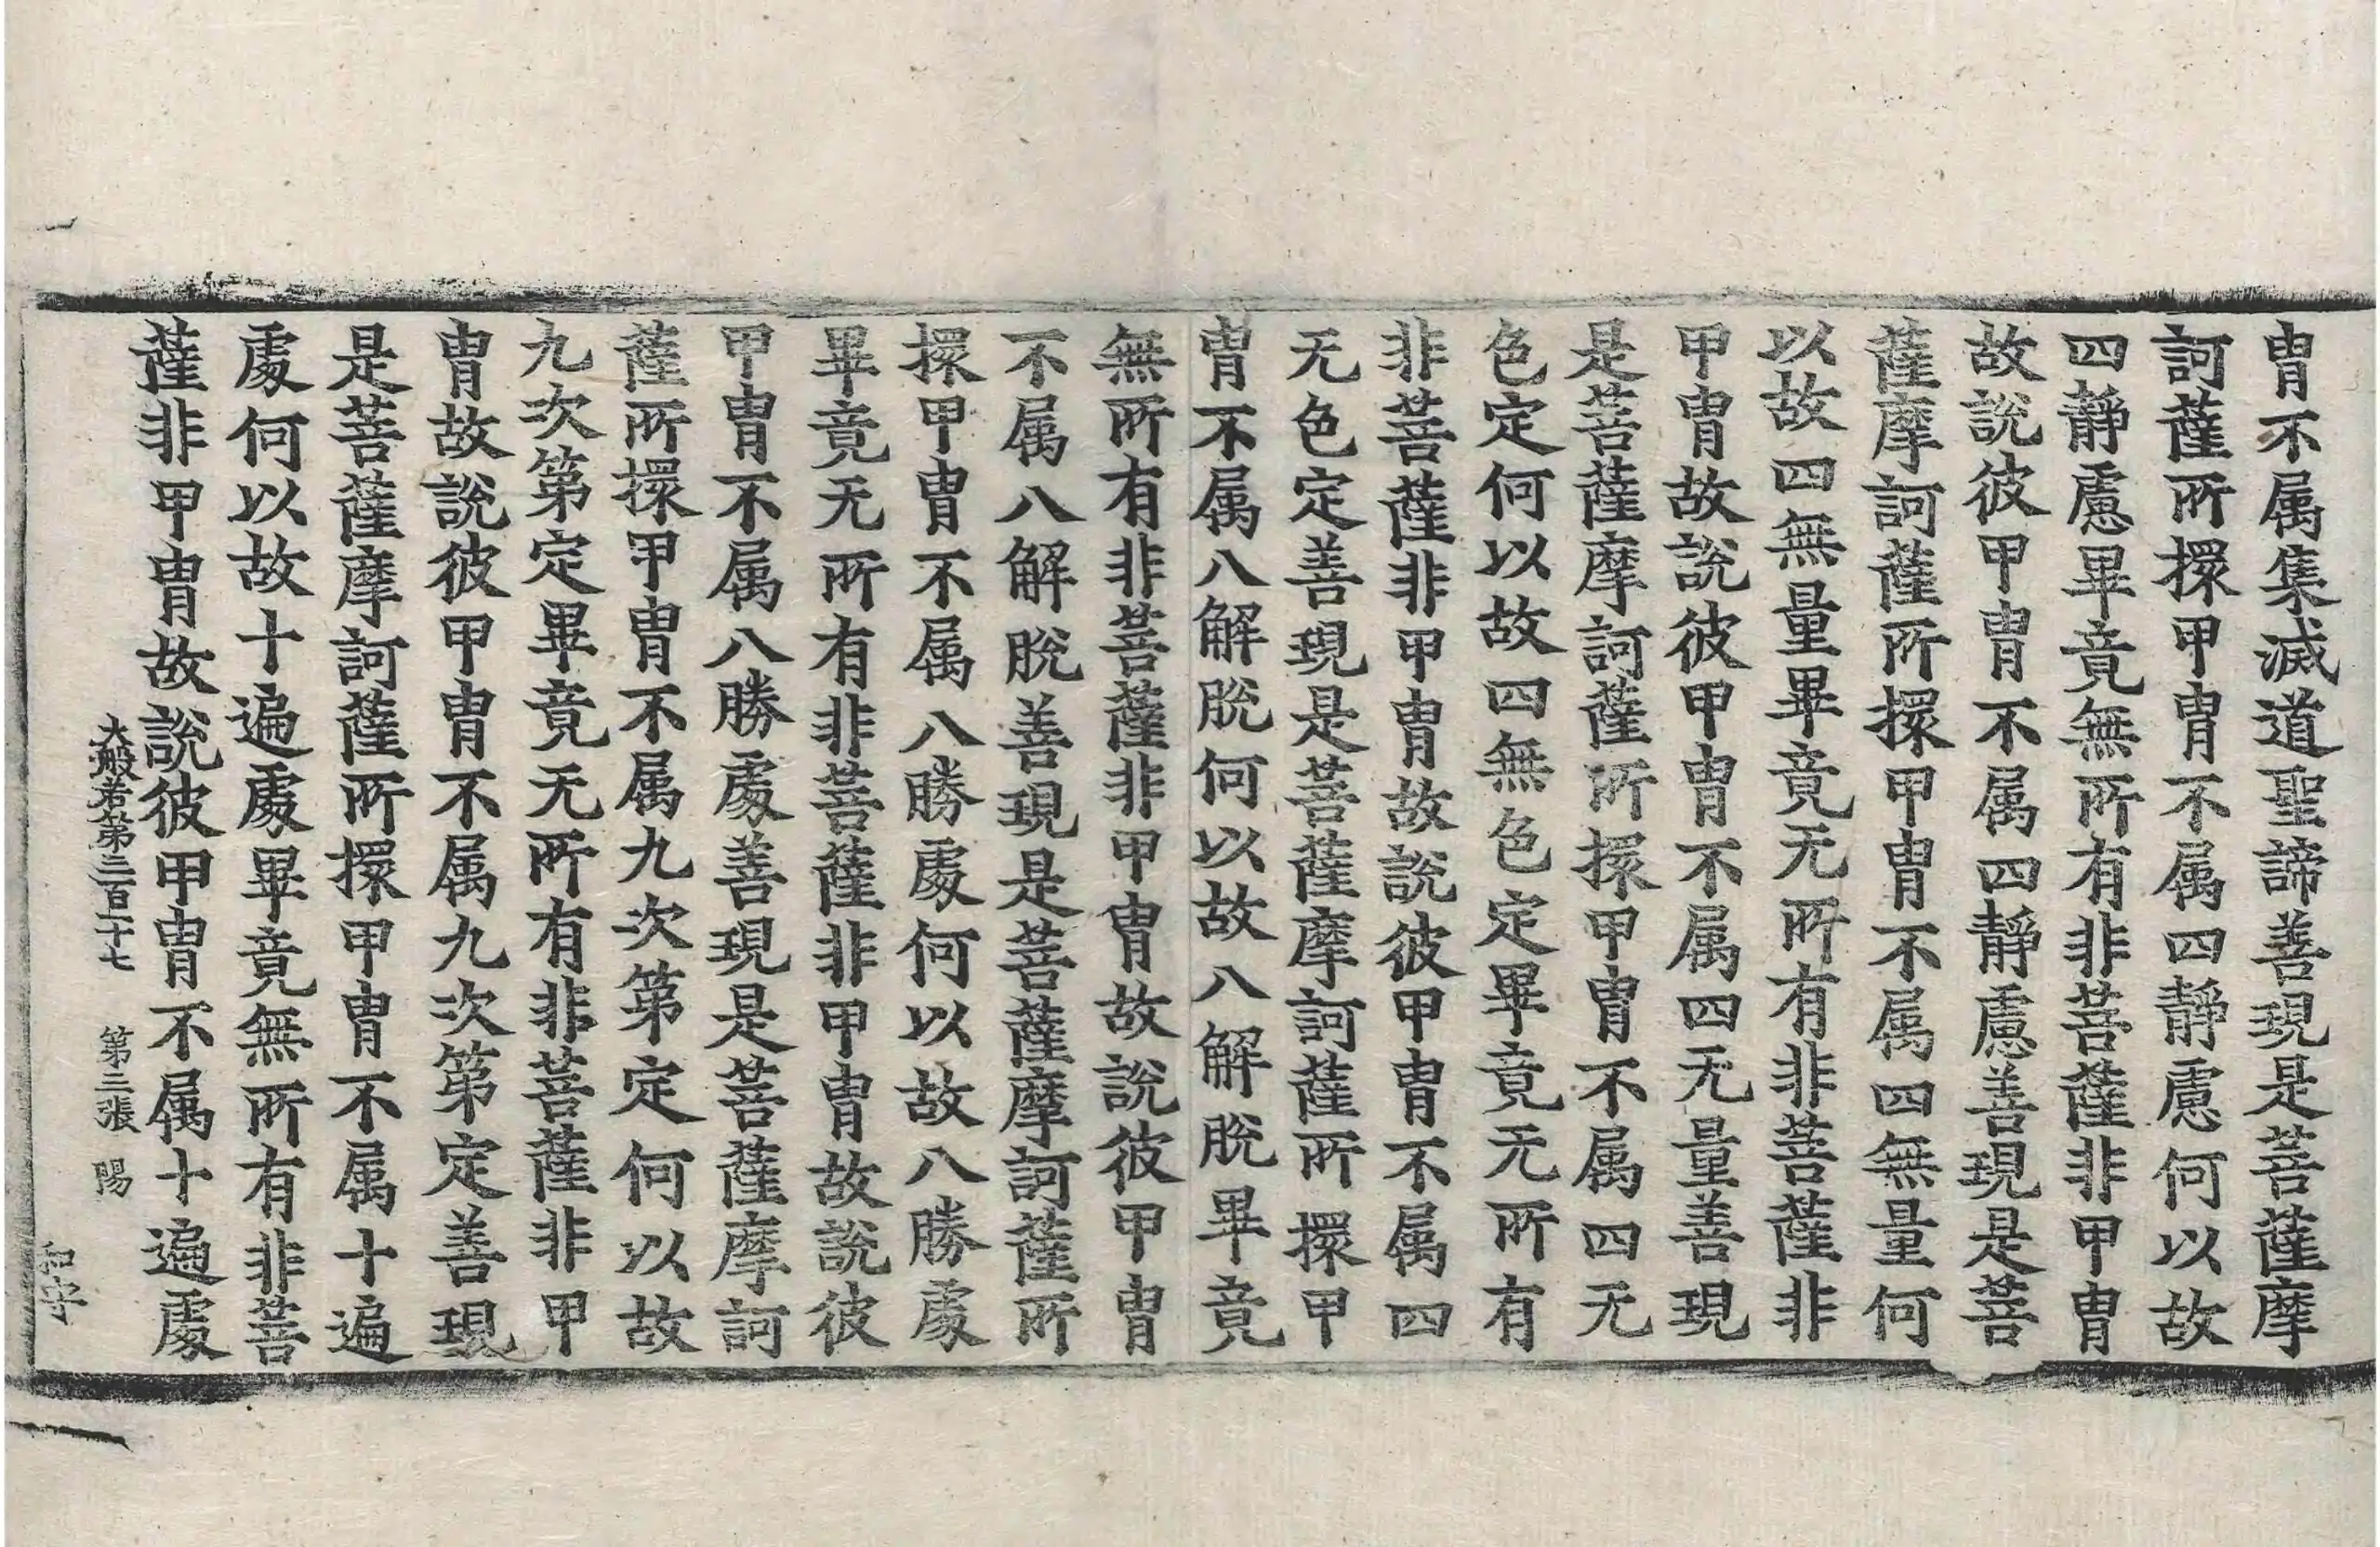 胄不属集滅道聖諦善現是菩薩摩
訶薩所擐甲胄不属四靜慮何以故
四靜慮畢竟無所有非菩薩非甲胄
故說彼甲胄不属四靜慮善現是菩
薩摩訶薩所擐甲胄不属四無量何
以故四無量畢竟无所有非菩薩非
甲胄故說彼甲胄不属四无量善現
是菩薩摩訶薩所擐甲胄不属四无
色定何以故四無色定畢竟无所有
非菩薩非甲胄故說彼甲胄不属四
无色定善現是菩薩摩訶薩所擐甲
胄不属八解脫何以故八解脫畢竟
無所有非菩薩非甲胄故說彼甲胄
不属八解脫善現是菩薩摩訶薩所
擐甲胄不属八勝處何以故八勝處
畢竟无所有非菩薩非甲胄故說彼
甲胄不属八勝處善現是菩薩摩訶
薩所擐甲胄不属九次第定何以故
九次第定畢竟无所有非菩薩非甲
胄故說彼甲胄不属九次第定善現
是菩薩摩訶薩所擐甲胄不属十遍
處何以故十遍處畢竟無所有非菩
薩非甲胄故說彼甲胄不属十遍處
大般若第三百十七 第三張 陽